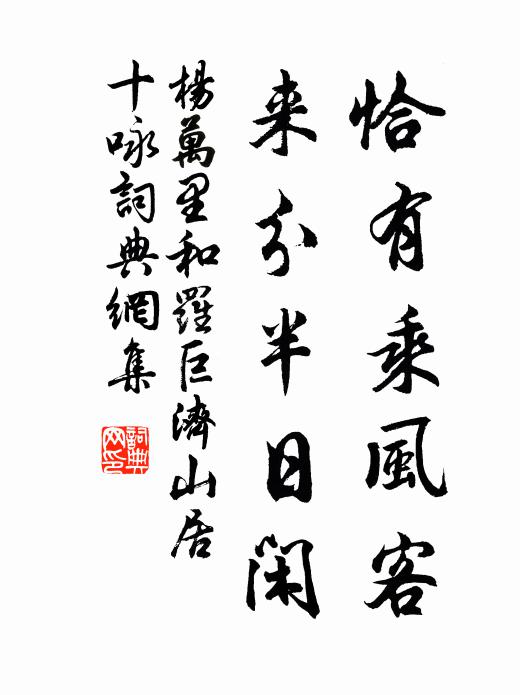 恰有乘風客
来分半日閑
楊萬里和羅巨濟山居
十咏詞典網集
詞典網印